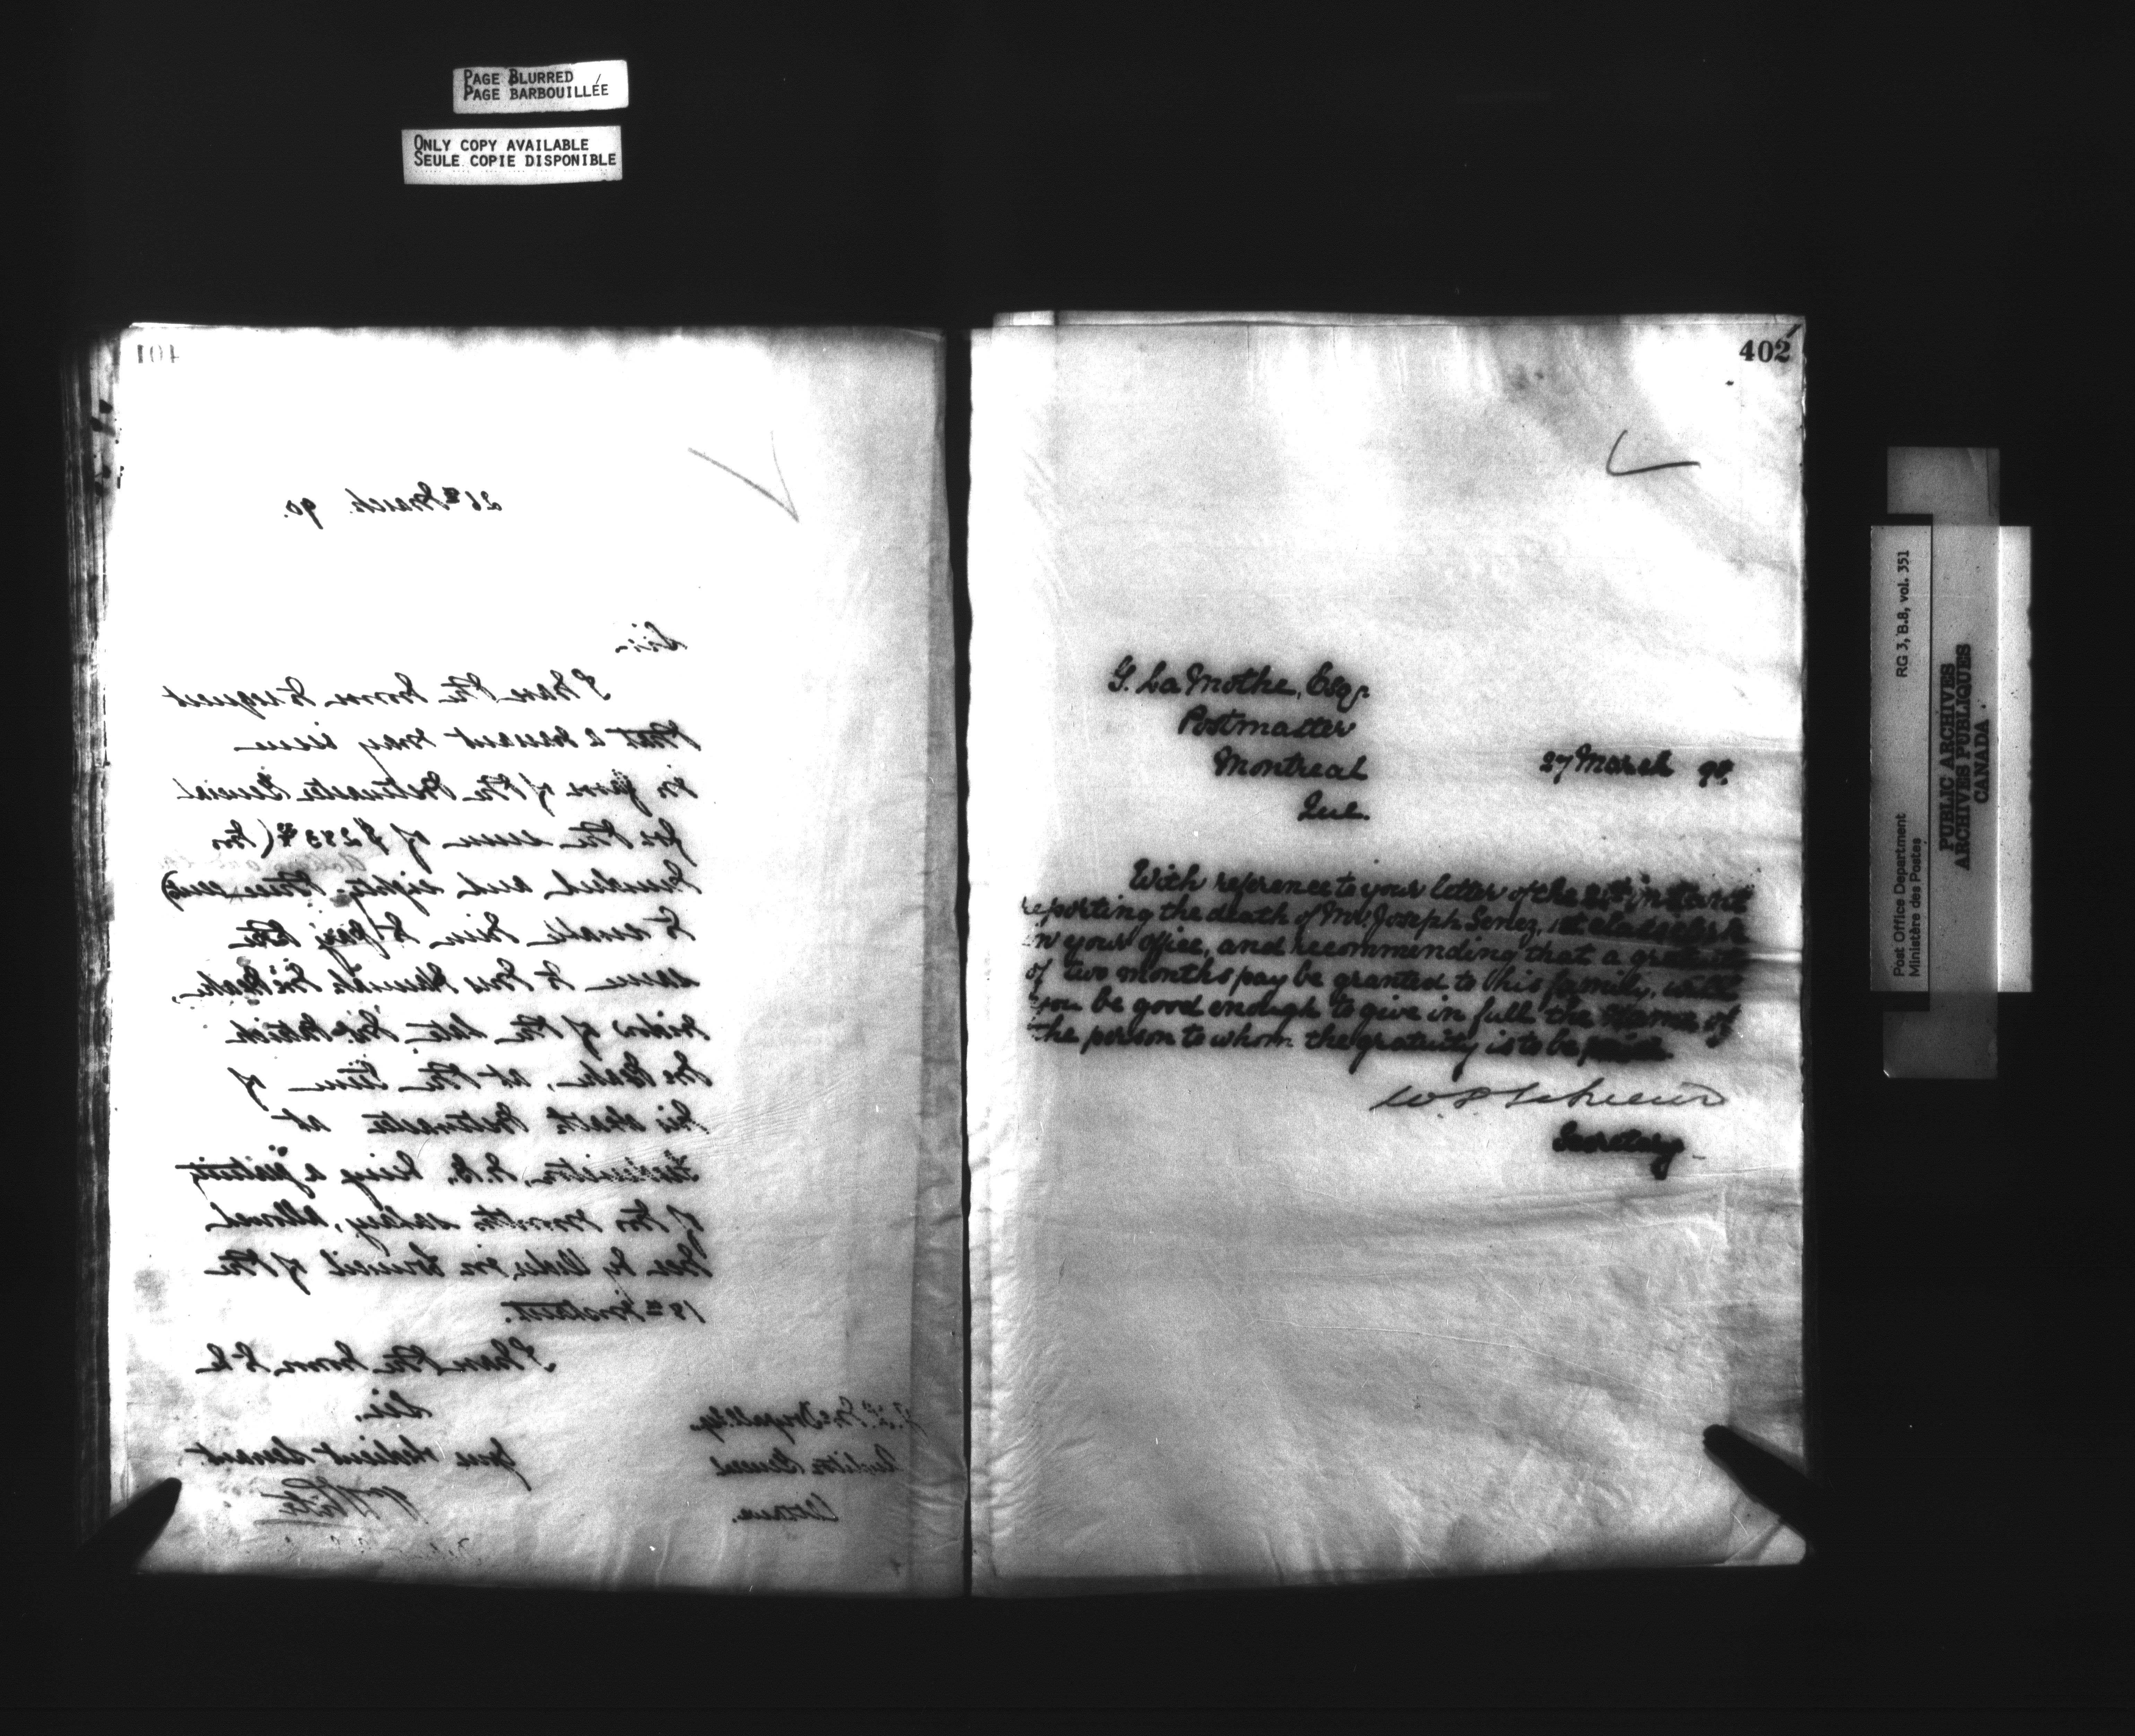 PAGE BLURRED
PAGE BARBOUILLÉE
ONLY COPY AVAILABLE
SEULE COPIE DISPONIBLE
401
26th March. 90.
Sir,
I have the honor to request
that a warrant may issue
in favor of the Postmaster General
for the sum of $283 (two
hundred and eighty three
to enable him to pay the
same to Mrs
widow of the late Mr. Patrick
at the time of
his death Postmaster at
N.B. being a gratuity
of two months salary, allowed
her by Order in Council of the
18th Instant.
I have the honor to be
Sir,
Your obedient Servant
J. L. McDougall Esq.
Auditor General
Ottawa.
402
G. La Mothe, Esqr.
Postmaster
Montreal
Que.
27 March 90.
With reference to your letter of the instant
reporting the death of Mr. Joseph Senez, 1st class clerk
in your office, and recommending that a gratuity
of two months pay be granted to his family, will
you be good enough to give in full the name of
the person to whom the gratuity is to be paid.
Secretary
Post Office Department RG 3, B.8, vol. 351
Ministère des Postes
PUBLIC ARCHIVES
ARCHIVES PUBLIQUES
CANADA